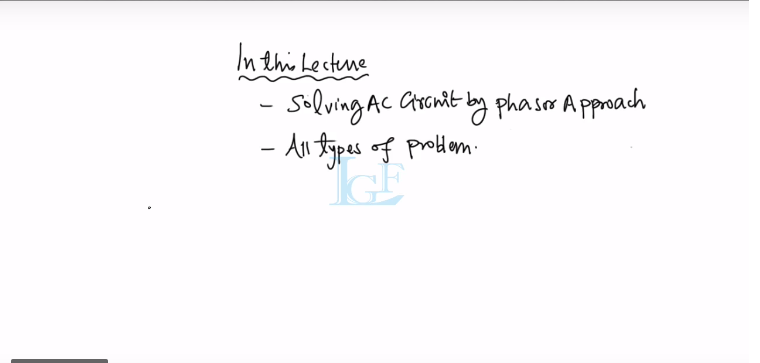 In this Lecture
- Solving AC Circuit by phasor Approach
- All types of problem.
IGF